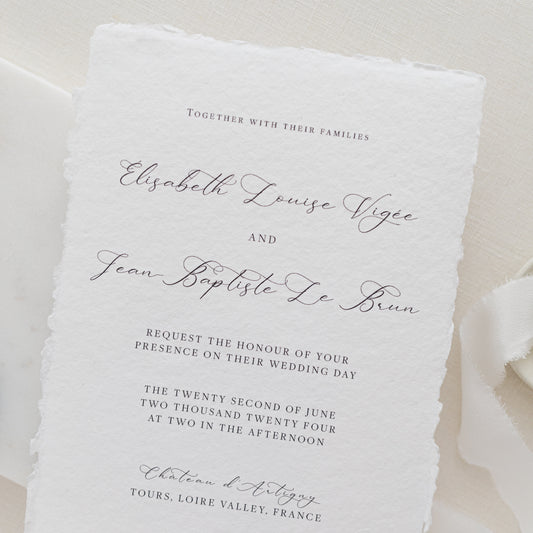 Together with their families
Elisabeth Louise Vigée
and
Jean-Baptiste Le Brun
request the honour of your
presence on their wedding day
the twenty second of June
two thousand twenty four
at two in the afternoon
Château d'Artigny
Tours, Loire Valley, France